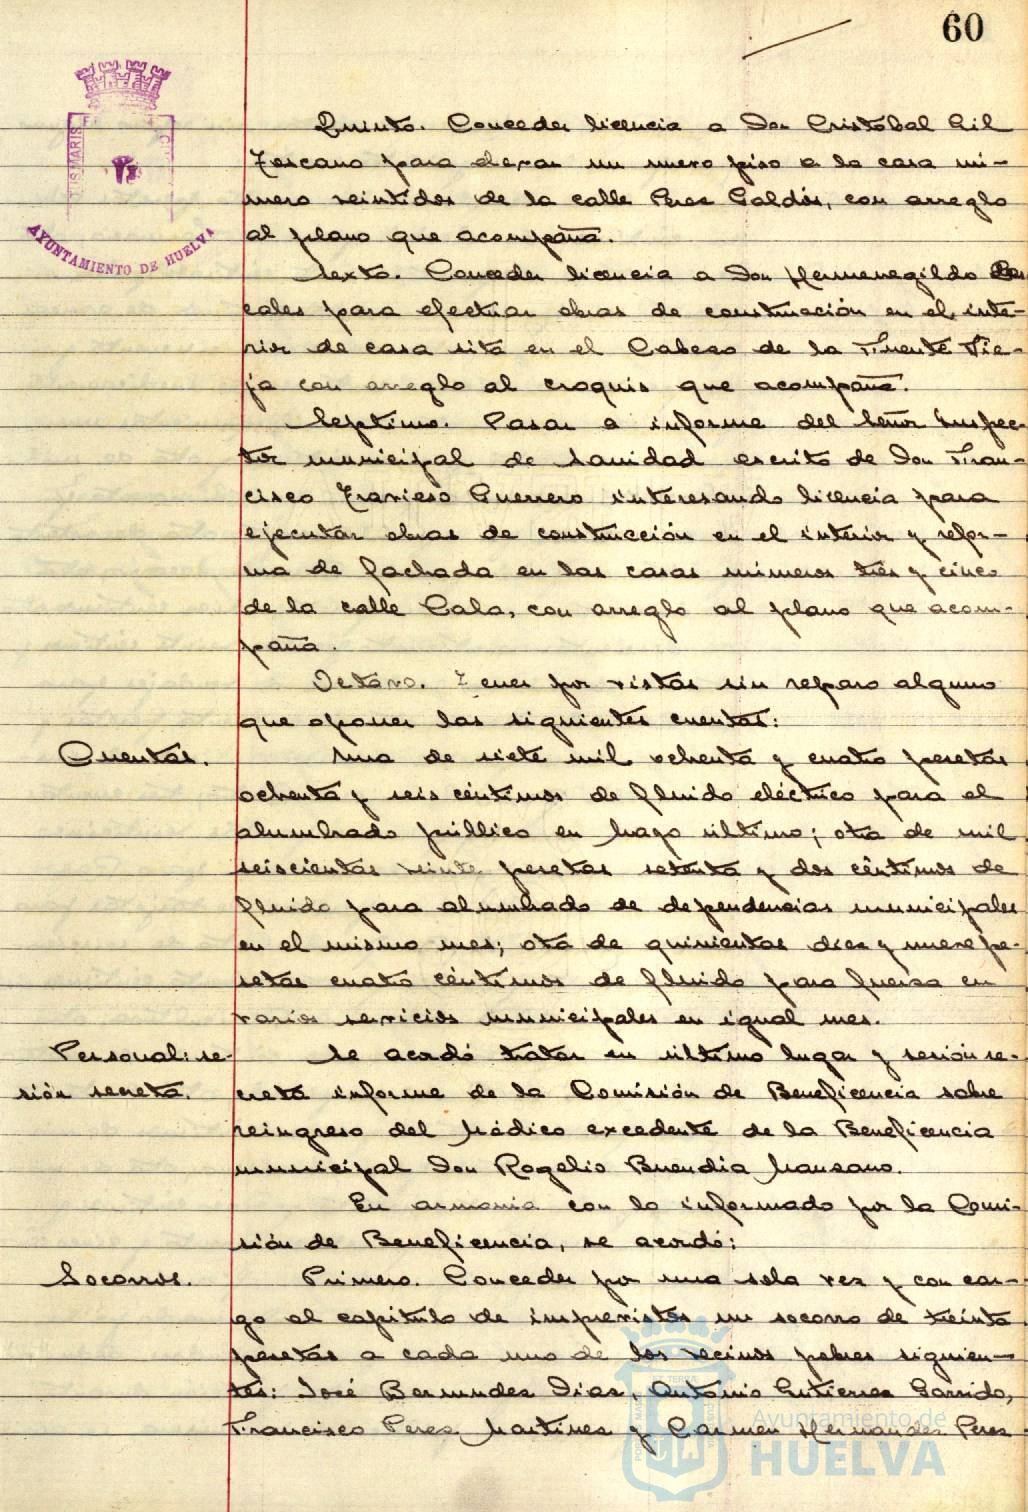 60
US MARIS
AYUNTAMIENTO DE HUELVA
Quinto. Conceder licencia a Don Cristóbal Gil
Toscano para elevar un nuevo piso a la casa nú-
mero veintidos de la calle Perez Galdós, con arreglo
al plano que acompaña.
Sexto. Conceder licencia a Don Hermenegildo
cales para efectuar obras de construcción en el inte-
rior de casa sita en el Cabezo de la Fuente Vie-
ja con arreglo al croquis que acompaña.
Septimo. Pasar a informe del Señor Inspec-
tor municipal de Sanidad escrito de Don Fran-
cisco Travieso Guerrero interesando licencia para
ejecutar obras de construcción en el interior y refor-
ma de fachada en las casas números tres y cinco
de la calle Cala, con arreglo al plano que acom-
paña.
Octavo. Tener por vistas sin reparo alguno
que oponer las siguientes cuentas:
Cuentas.
Una de siete mil ochenta y cuatro pesetas
ochenta y seis céntimos de fluido eléctrico para el
alumbrado público en Mayo último; otra de mil
seiscientas veinte pesetas setenta y dos céntimos de
fluido para alumbrado de dependencias municipales
en el mismo mes; otra de quinientas diez y nueve pe-
setas cuatro céntimos de fluido para fuerza en
varios servicios municipales en igual mes.
Personal: se-
sión secreta.
Se acordó tratar en último lugar y sesión se-
creta informe de la Comisión de Beneficencia sobre
reingreso del Médico excedente de la Beneficencia
municipal Don Rogelio Buendia Manzano.
En armonia con lo informado por la Comi-
sión de Beneficencia, se acordó:
Socorros.
Primero. Conceder por una sola vez y con car-
go al capitulo de imprevistos un socorro de treinta
pesetas a cada uno de los vecinos pobres siguien-
tes: José Bermudez Diaz, Antonio Gutierrez Garrido,
Francisco Perez Martinez y Carmen Hernandez Perez
Ayuntamiento de
HUELVA